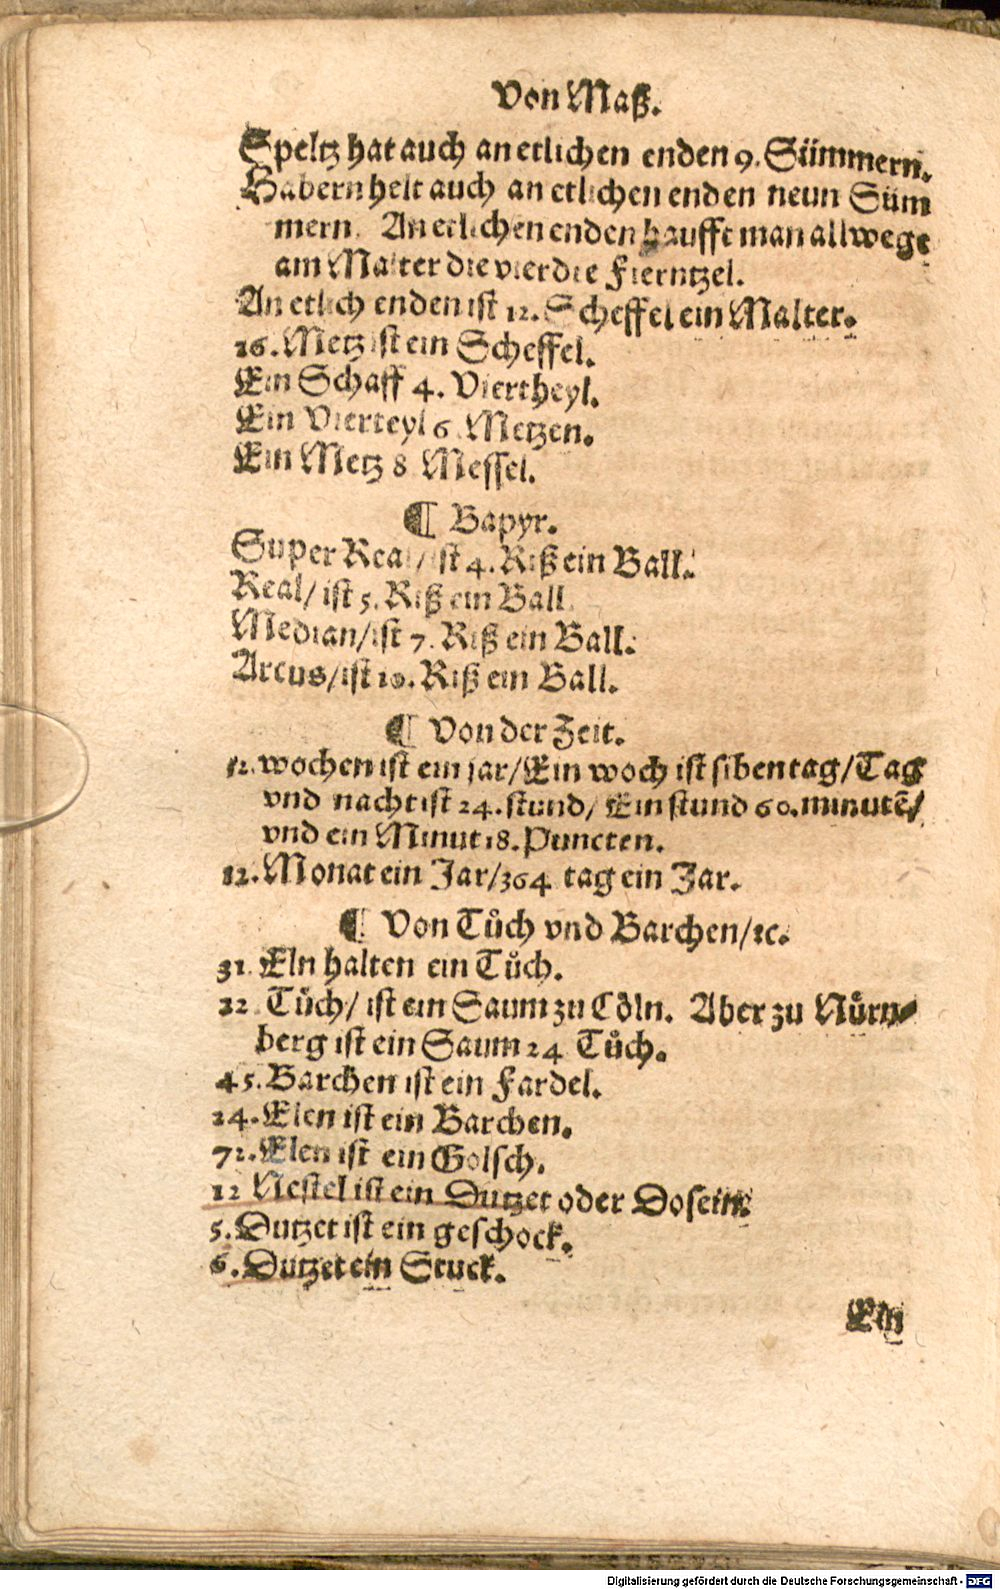 Von Maß.
Speltz hat auch an etlichen enden 9. Sümmern.
Habern helt auch an etlichen enden neun Süm
mern. An etlichen enden haufft man allwege
am Malter die vierdte Fierntzel.
An etlich enden ist 12. Scheffel ein Malter.
16. Metz ist ein Scheffel.
Ein Schaff 4. Viertheyl.
Ein Vierteyl 6. Metzen.
Ein Metz 8 Messel.
¶ Bapyr.
Super Real/ ist 4. Riß ein Ball.
Real/ ist 5. Riß ein Ball.
Median/ ist 7. Riß ein Ball.
Arcus/ ist 10. Riß ein Ball.
¶ Von der Zeit.
wochen ist ein jar/ Ein woch ist siben tag/ Tag
vnd nacht ist 24. stund/ Ein stund 60. minutē/
vnd ein Minut 18. Puncten.
12. Monat ein Jar/ 364 tag ein Jar.
¶ Von Tůch vnd Barchen/ ꝛc.
31. Eln halten ein Tůch.
22 Tůch/ ist ein Saum zu Cöln. Aber zu Nůrn⸗
berg ist ein Saum 24 Tůch.
45. Barchen ist ein Fardel.
24. Elen ist ein Barchen.
72. Elen ist ein Golsch.
12 Nestel ist ein Dutzet oder Dosein.
5. Dutzet ist ein geschock.
6. Dutzet ein Stuck.
Ein
Digitalisierung gefördert durch die Deutsche Forschungsgemeinschaft - DFG